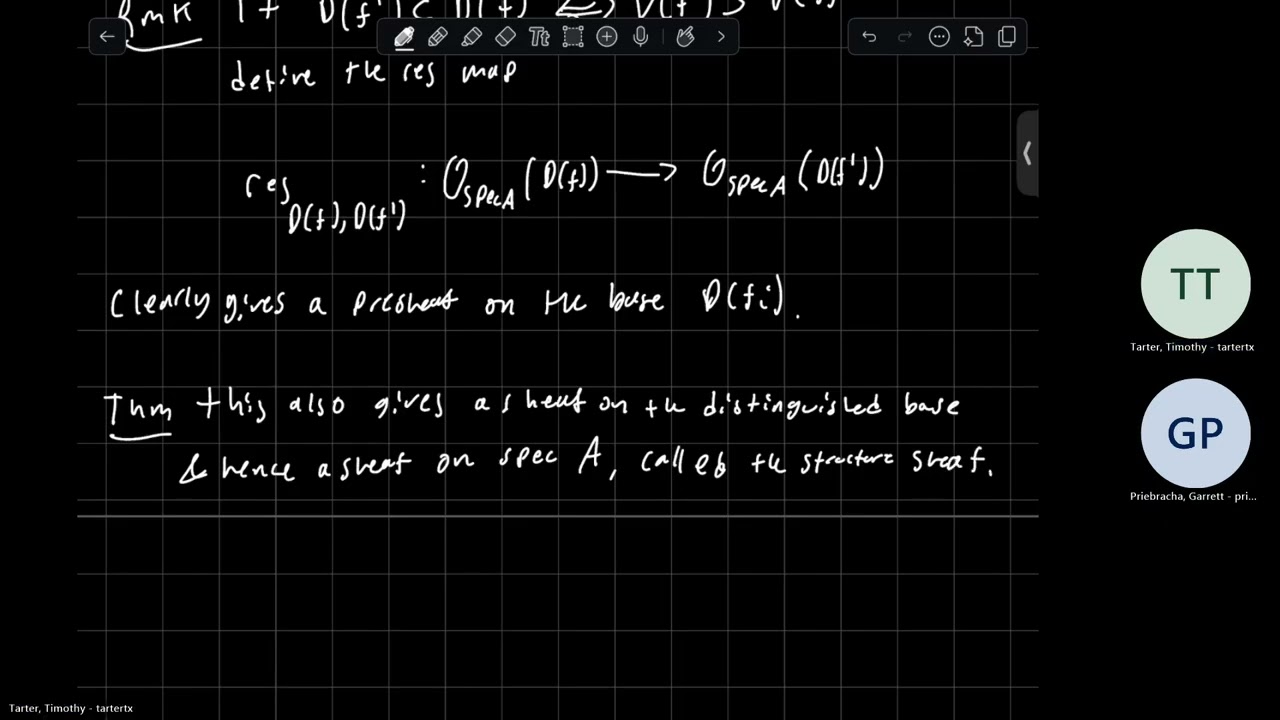 Rmk If D(f') ⊂ D(f)
define the res map
res_{D(f), D(f')} : O_{Spec A}(D(f)) ⟶ O_{Spec A}(D(f'))
Clearly gives a presheaf on the base D(fi).
Thm this also gives a sheaf on the distinguished base
& hence a sheaf on spec A, called the structure sheaf.
TT
Tarter, Timothy - tartertx
GP
Priebracha, Garrett - pri...
Tarter, Timothy - tartertx